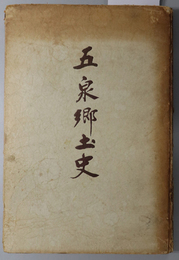 五泉郷土史